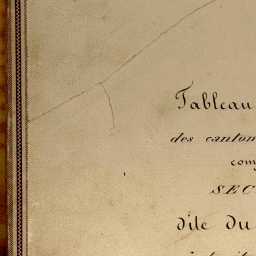 Tableau
des canton
com
SEC
dite du